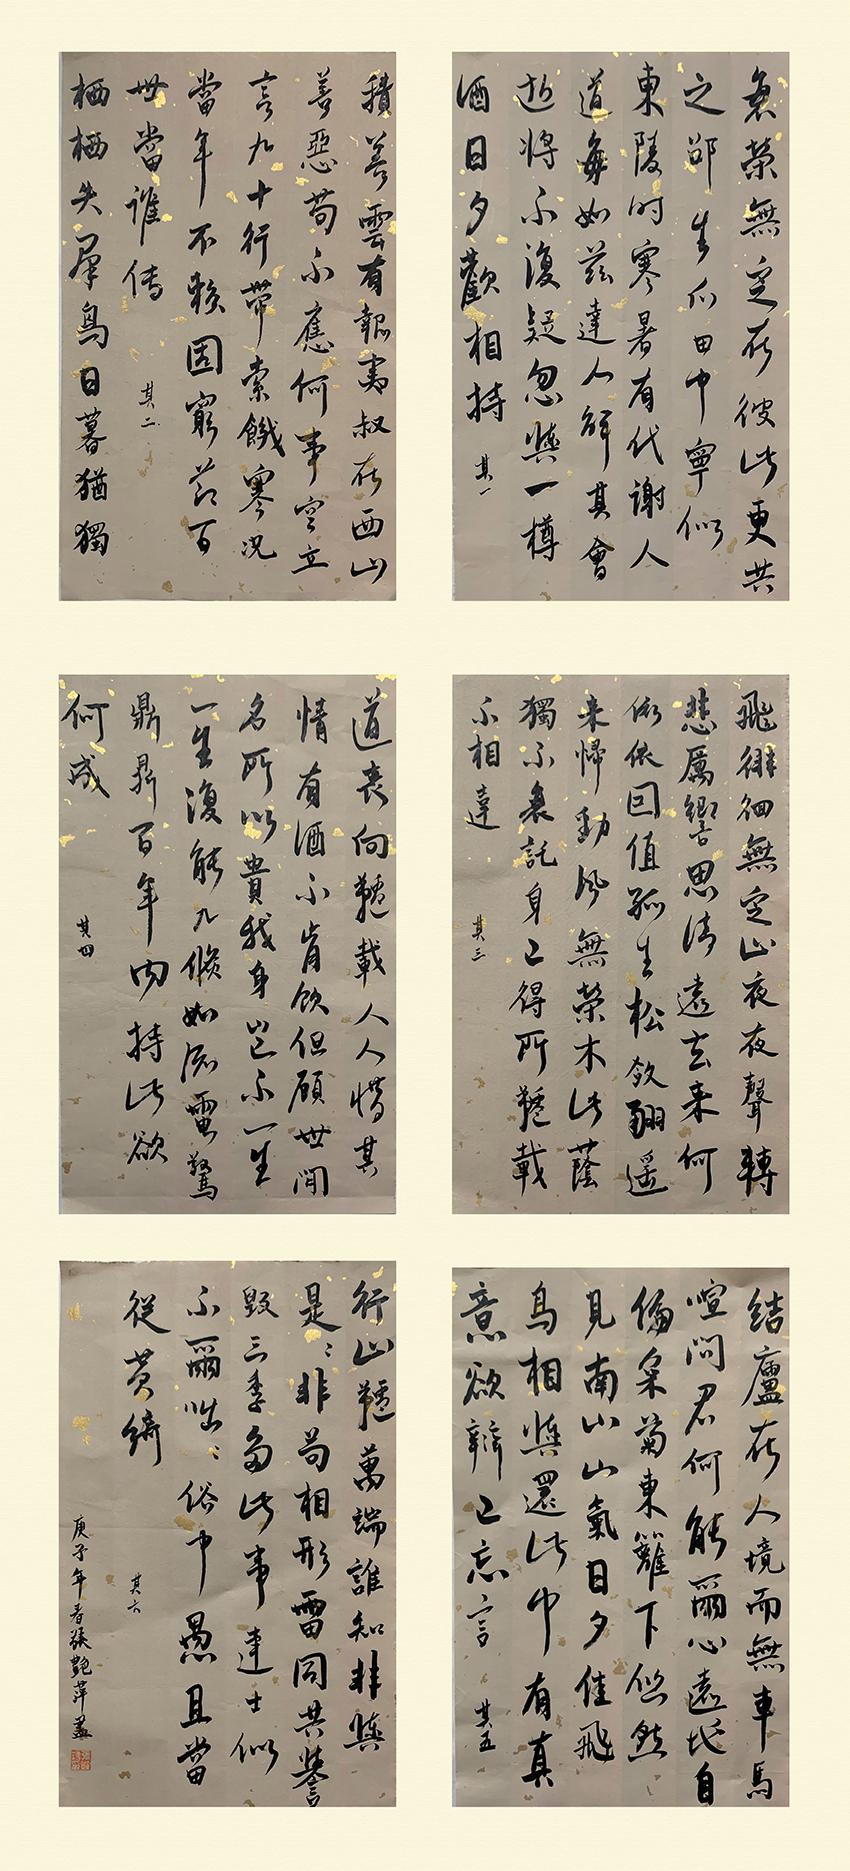 衰榮無定在彼此更共
之邵生瓜田中寧似
東陵时寒暑有代謝人
道每如茲達人解其會
逝将不復疑忽與一樽
酒日夕歡相持 其一
積善雲有報夷叔在西山
善惡苟不應何事空立
言九十行帶索饑寒况
當年不賴固窮節百
世當誰傳 其二
栖栖失羣鳥日暮猶獨
飛徘徊無定止夜夜聲轉
悲厲響思清遠去来何
依依因值孤生松斂翮遥
来歸勁風無榮木此蔭
獨不衰託身已得所韆載
不相違 其三
道喪向韆載人人惜其
情有酒不肯飲但顧世间
名所以貴我身豈不一生
一生復能几倏如流電驚
鼎鼎百年内持此欲
何成 其四
結廬在人境而無車馬
喧問君何能爾心遠地自
偏采菊東籬下悠然
見南山山氣日夕佳飛
鳥相與還此中有真
意欲辯已忘言 其五
行止韆萬端誰知非與
是〻非苟相形雷同共譽
毁三季多此事達士似
不爾咄〻俗中愚且當
從黄綺 其六
庚子年春張艷萍書